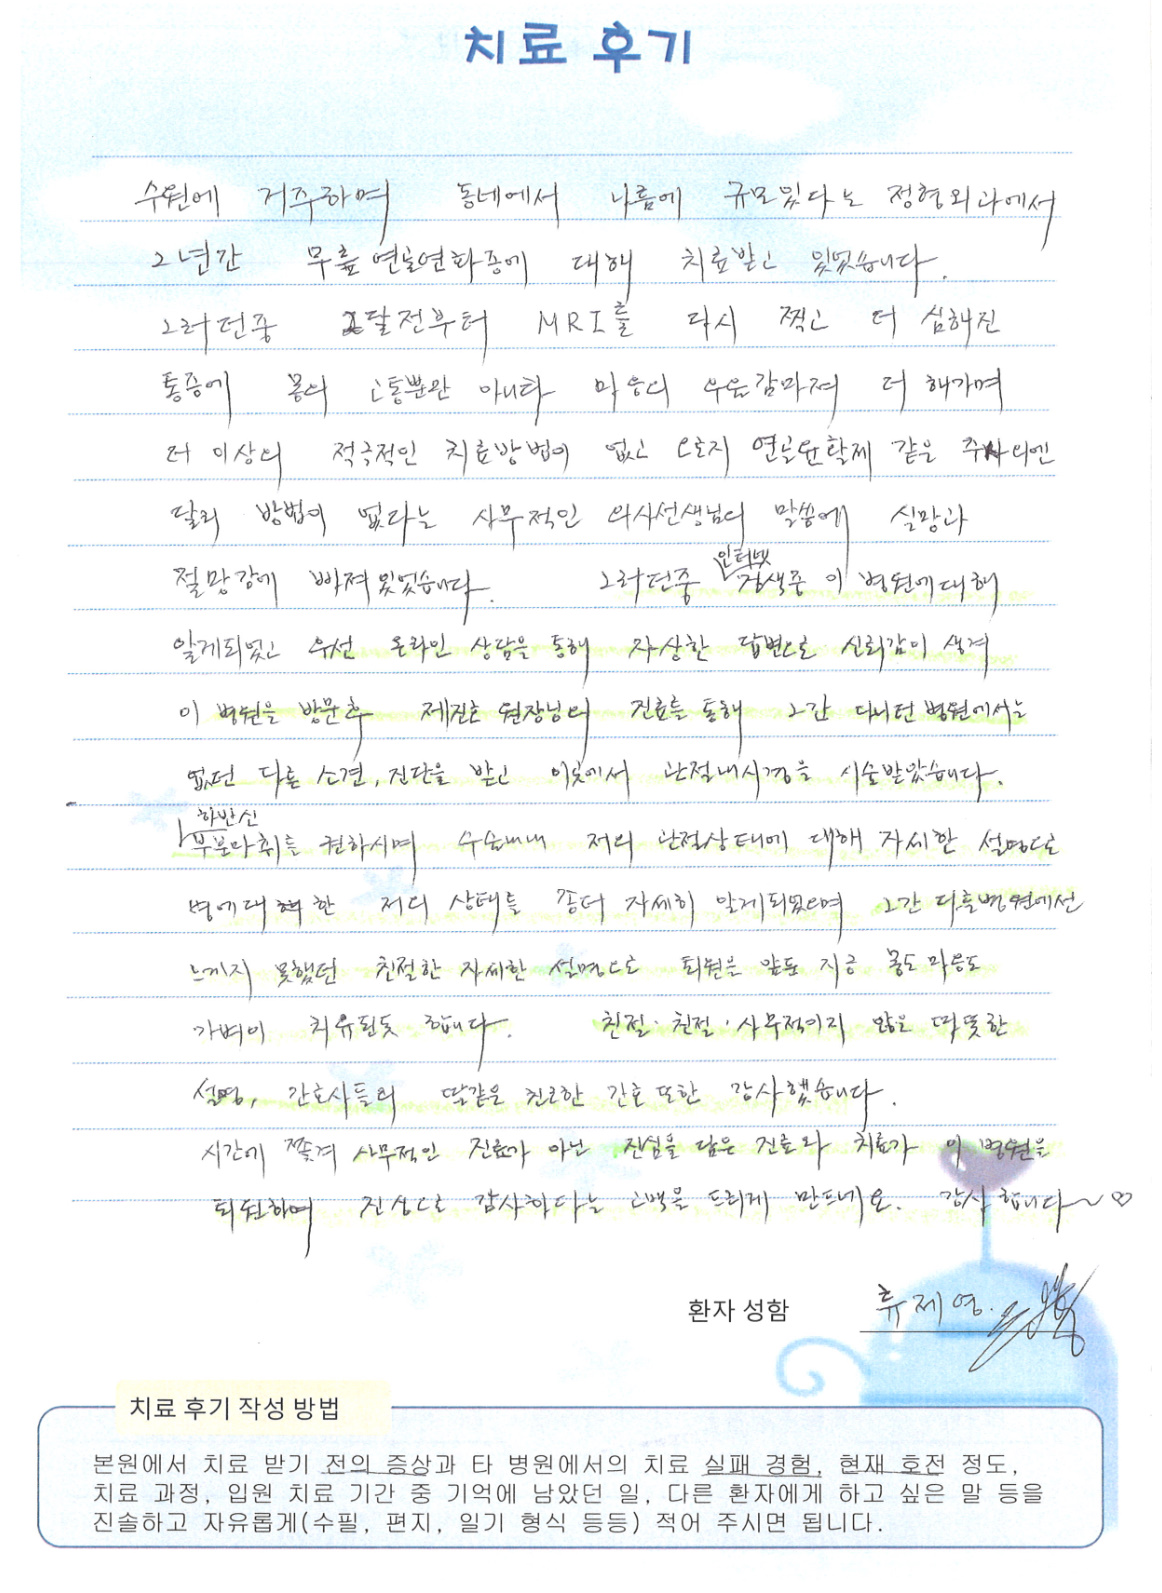 치료 후기
수원에 거주하며 동네에서 나름에 규모있다는 정형외과에서
2년간 무릎 연골연화증에 대해 치료받고 있었습니다.
그러던중 2달전부터 MRI를 다시 찍고 더 심해진
통증에 몸의 고통뿐만 아니다 마음의 우울감마져 더 해가며
더 이상의 적극적인 치료방법이 없고 오로지 연골윤활제 같은 주사외엔
달리 방법이 없다는 사무적인 의사선생님의 말씀에 실망과
절망감에 빠져있었습니다. 그러던중 인터넷 검색중 이 병원에대해
알게되었고 우선 온라인 상담을 통해 자상한 답변으로 신뢰감이 생겨
이 병원을 방문후 제진호 원장님의 진료를 통해 그간 다니던 병원에서는
없던 다른 소견, 진단을 받고 이곳에서 관절내시경을 시술받았습니다.
하반신
부분마취를 권하시며 수술내내 저의 관절상태에 대해 자세한 설명으로
병에대한 저의 상태를 좀더 자세히 알게되었으며 그간 다른병원에선
느끼지 못했던 친절한 자세한 설명으로 퇴원을 앞둔 지금 몸도 마음도
가벼이 치유된듯 합니다. 친절·친절·사무적이지 않은 따뜻한
설명, 간호사들의 딸같은 친근한 간호 또한 감사했습니다.
시간에 쫓겨 사무적인 진료가 아닌 진심을 담은 진료와 치료가 이 병원을
퇴원하며 진심으로 감사하다는 고백을 드리게 만드네요. 감사 합니다~♡
환자 성함 류제영.
치료 후기 작성 방법
본원에서 치료 받기 전의 증상과 타 병원에서의 치료 실패 경험, 현재 호전 정도,
치료 과정, 입원 치료 기간 중 기억에 남았던 일, 다른 환자에게 하고 싶은 말 등을
진솔하고 자유롭게(수필, 편지, 일기 형식 등등) 적어 주시면 됩니다.